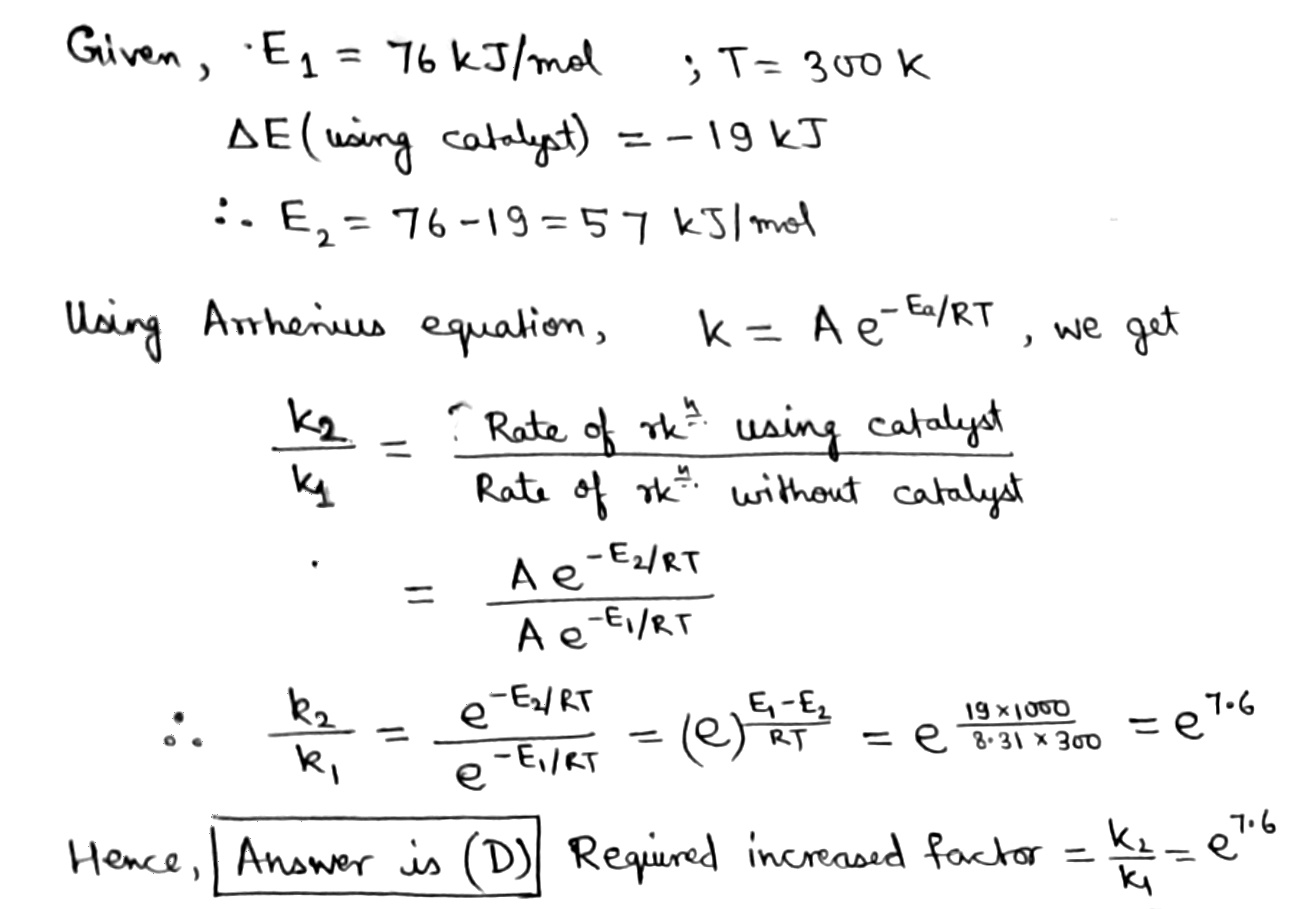 Given, E₁ = 76 kJ/mol ; T = 300 K
ΔE (using catalyst) = -19 kJ
∴ E₂ = 76 - 19 = 57 kJ/mol
Using Arrhenius equation, k = A e^{-Ea/RT}, we get
k₂/k₁ = Rate of rkⁿ. using catalyst / Rate of rkⁿ. without catalyst
= A e^{-E₂/RT} / A e^{-E₁/RT}
∴ k₂/k₁ = e^{-E₂/RT} / e^{-E₁/RT} = (e)^{(E₁-E₂)/RT} = e^{(19×1000)/(8.31×300)} = e^{7.6}
Hence, Answer is (D) Required increased factor = k₂/k₁ = e^{7.6}